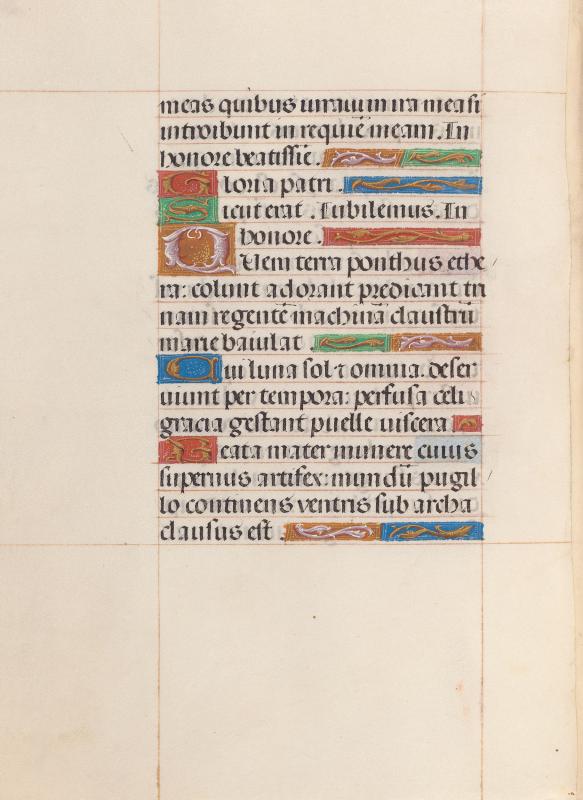 meas quibus iuravi in ira mea si
introibunt in requiē meam. In
honore beatissīe.
Gloria patri.
Sicut erat. Iubilemus. In
honore.
Quem terra ponthus ethe
ra: colunt adorant predicant tri
nam regentē machinā claustrū
marie baiulat.
Cui luna sol ⁊ omnia. deser
uiunt per tempora: perfusa celi
gracia gestant puelle viscera
Beata mater munere cuius
supernus artifex: mundū pugil
lo continens ventris sub archa
clausus est.